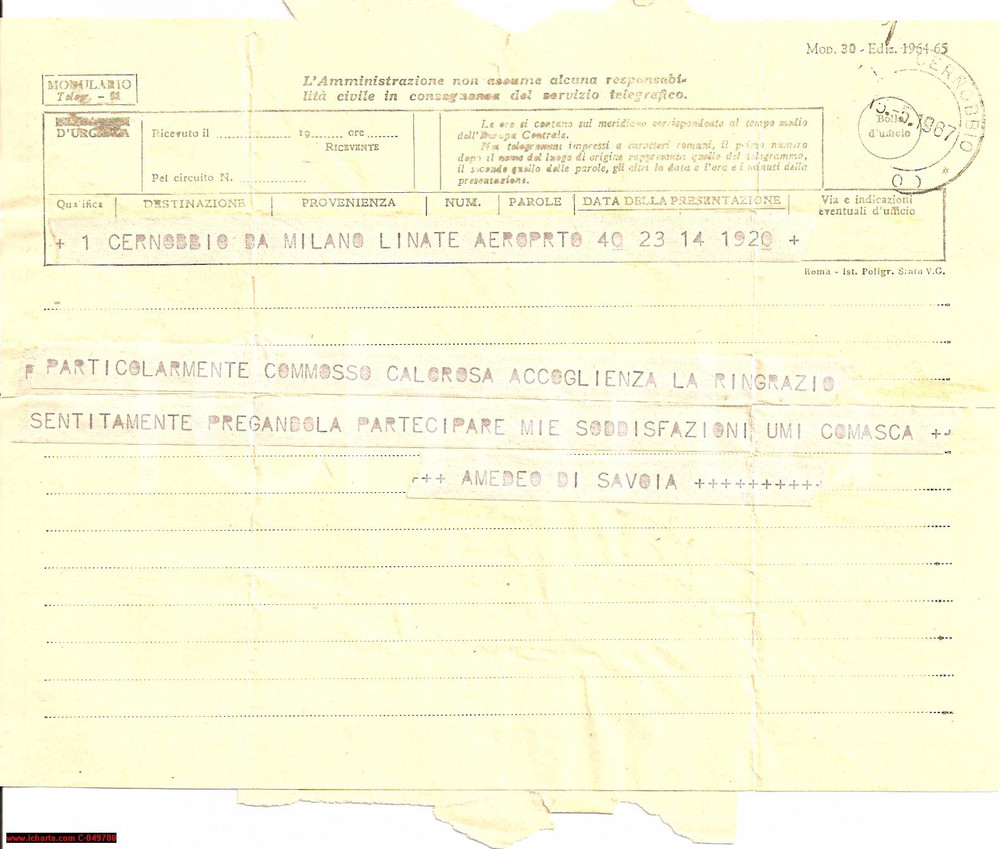 Mod. 30 - Ediz. 1964-65
MODULARIO
Telegr. - 61
L'Amministrazione non assume alcuna responsabi-
lità civile in conseguenza del servizio telegrafico.
CERNOBBIO
5.1967
Bollo
d'ufficio
D'URGENZA
Ricevuto il 19 ore
RICEVENTE
Pel circuito N.
Le ore si contano sul meridiano corrispondente al tempo medio
dell'Europa Centrale.
Nei telegrammi impressi a caratteri romani, il primo numero
dopo il nome del luogo di origine rappresenta quello del telegramma,
il secondo quello delle parole, gli altri la data e l'ora e i minuti della
presentazione.
Qualifica DESTINAZIONE PROVENIENZA NUM. PAROLE DATA DELLA PRESENTAZIONE Via e indicazioni
eventuali d'ufficio
+ 1 CERNOBBIO DA MILANO LINATE AEROPRTO 40 23 14 1920 +
Roma - Ist. Poligr. Stato V.G.
PARTICOLARMENTE COMMOSSO CALOROSA ACCOGLIENZA LA RINGRAZIO
SENTITAMENTE PREGANDOLA PARTECIPARE MIE SODDISFAZIONI UMI COMASCA ++
+++ AMEDEO DI SAVOIA ++++++++++
www.icharta.com C-049700